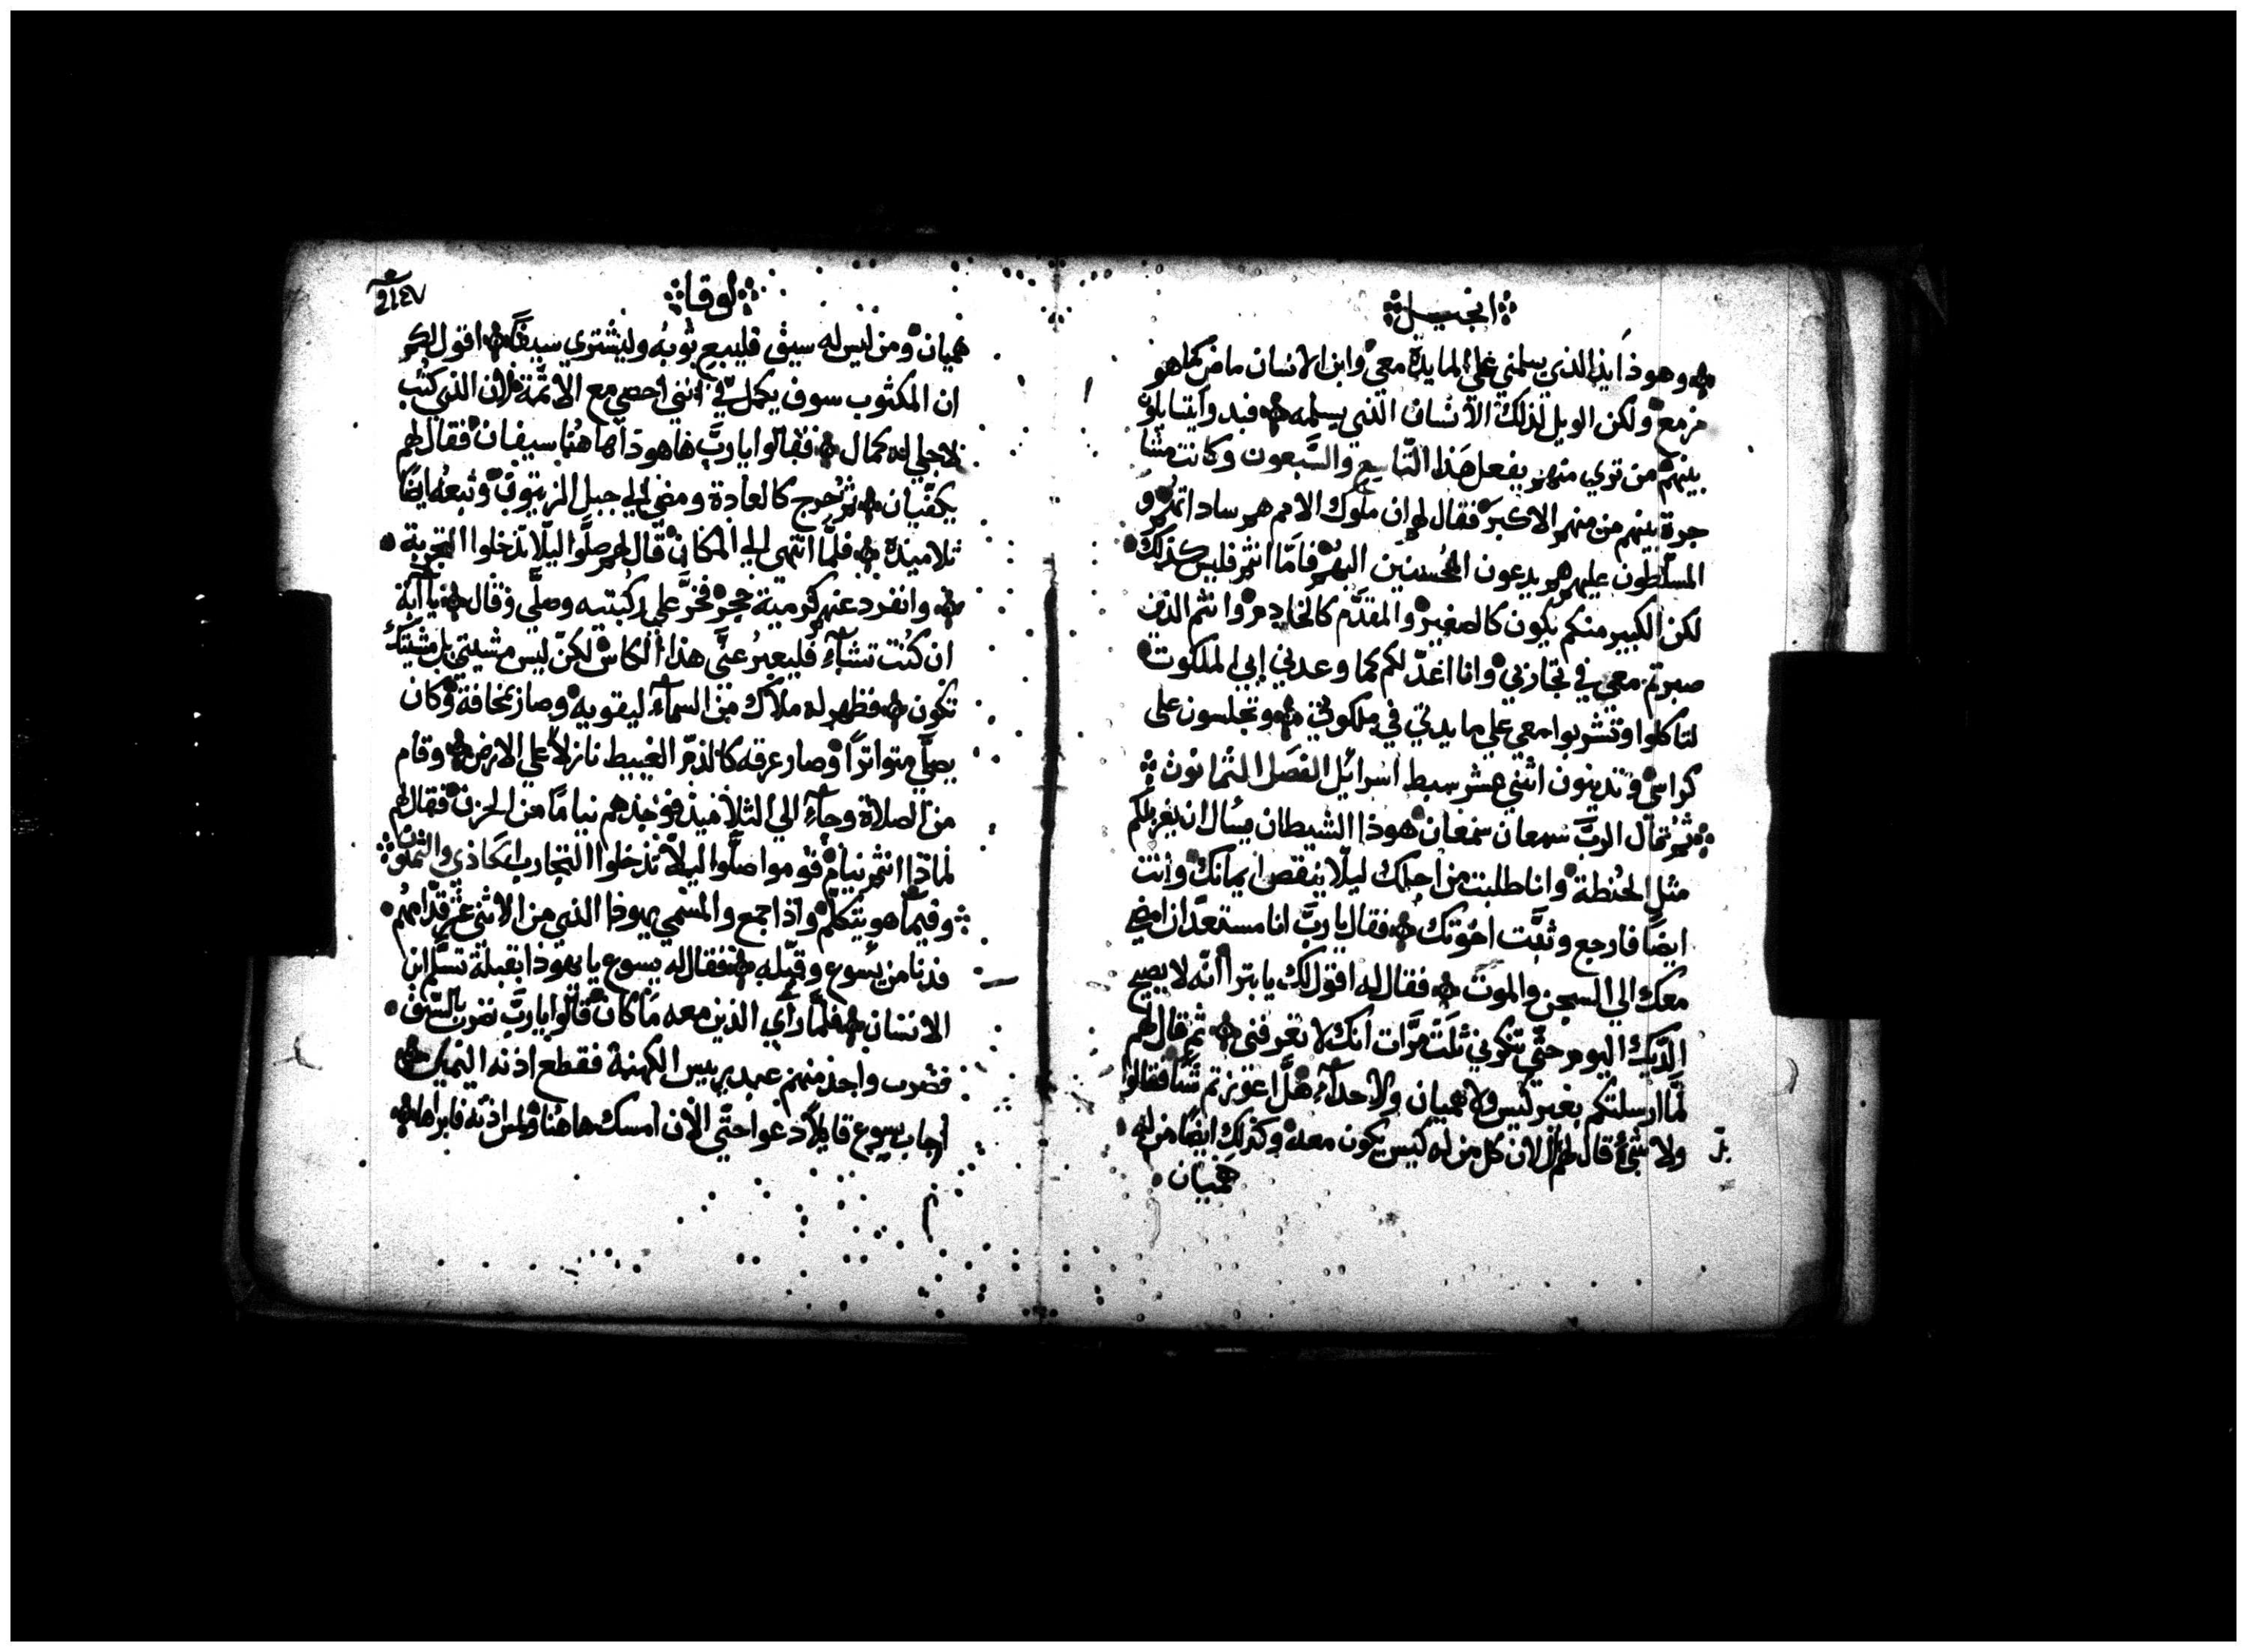 انجيل
وهوذا يد الذي يسلمني علي المايدة معي وابن الانسان ماض كما هو
مزمع ولكن الويل لذلك الانسان الذي يسلمه فبدوا يتسالون
بينهم من تري منهم يفعل هذا التاسع والسبعون وكانت مشا
جرة بينهم من منهم الاكبر فقال لهم ان ملوك الامم هم ساداتهم و
المسلطون عليهم هم يدعون المحسنين اليهم فاما انتم فليس كذلك
لكن الكبير منكم يكون كالصغير والمقدم كالخادم وانتم الذين
صبرتم معي في تجاربي وانا اعد لكم كما وعدني ابي الملكوت
لتاكلوا وتشربوا معي علي مايدتي في ملكوتي وتجلسون علي
كراسي وتدينون اثني عشر سبط اسرائيل الفصل الثمانون
ثم قال الرب سمعان سمعان هوذا الشيطان يسال ان يغربلكم
مثل الحنطة وانا طلبت من اجلك ليلا ينقص ايمانك وانت
ايضا فارجع وثبت اخوتك فقال يا رب انا مستعد ان امضي
معك الي السجن والموت فقال له اقول لك يا بترا انه لا يصيح
الديك اليوم حتي تنكرني ثلث مرات انك لا تعرفني ثم قال لهم
لما ارسلتكم بغير كيس ولا هميان ولا حداء هل اعوزتم شيا فقالوا
ولا شي قال لهم الان كل من له كيس يكون معه وكذلك ايضا من له
هميان
لوقا
هميان ومن ليس له سيف فليبع ثوبه وليشتري سيفا اقول لكم
ان المكتوب سوف يكمل في انني احصي مع الاثمة لان الذي كتب
لاجلي له كمال فقالوا يا رب ها هوذا هاهنا سيفان فقال لهم
يكفيان ثم خرج كالعادة ومضي الي جبل الزيتون وتبعه ايضا
تلاميذه فلما انتهي الي المكان قال لهم صلوا ليلا تدخلوا التجربة
وانفرد عنهم كرمية حجر فخر علي ركبتيه وصلي وقال يا ابة
ان كنت تشاء فليعبر عني هذا الكاس لكن ليس مشيتي بل مشيتك
تكون فظهر له ملاك من السماء ليقويه وصار بمخافة وكان
يصلي متواترا وصار عرقه كالدم الغبيط نازلا علي الارض وقام
من الصلاة وجاء الي التلاميذ فوجدهم نياما من الحزن فقال لهم
لماذا انتم نيام قوموا صلوا ليلا تدخلوا التجارب الحادي والثمانون
وفيما هو يتكلم واذا جمع والمسمي يهوذا الذي من الاثني عشر قدامهم
فدنا من يسوع وقبله فقال له يسوع يا يهوذا بقبلة تسلم ابن
الانسان فلما راي الذين معه ما كان قالوا يا رب نضرب بالسيف
فضرب واحد منهم عبد رييس الكهنة فقطع اذنه اليمين
اجاب يسوع قايلا دعوا حتي الان امسك هاهنا ولمس اذنه فابراها